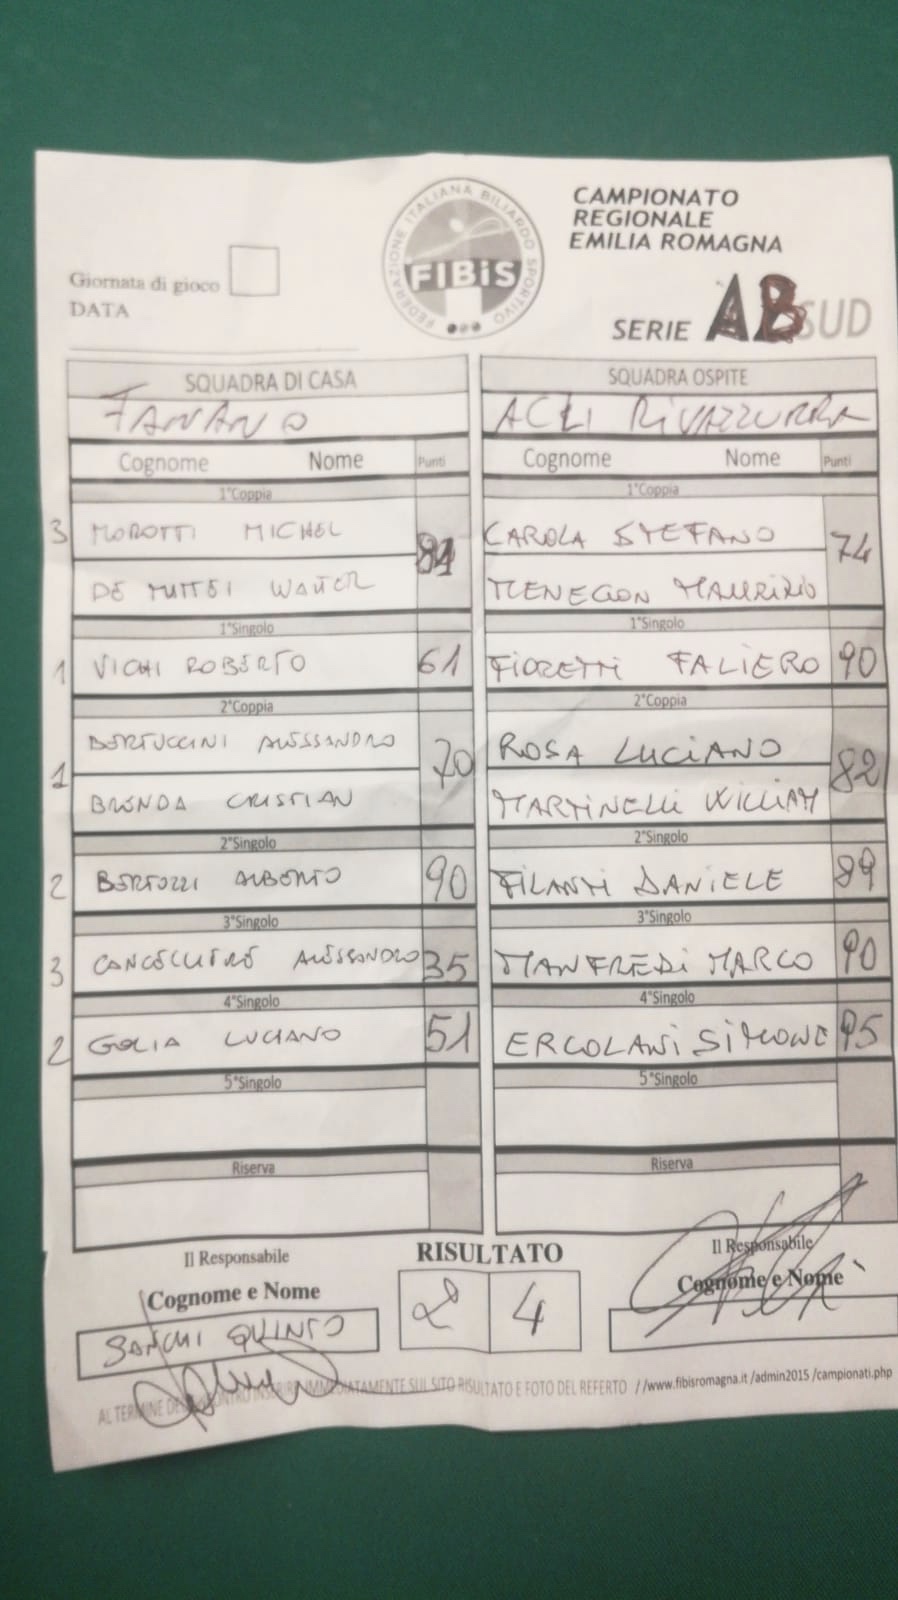 FEDERAZIONE ITALIANA BILIARDO SPORTIVO
FIBiS
CAMPIONATO
REGIONALE
EMILIA ROMAGNA
Giornata di gioco
DATA
SERIE AB SUD
SQUADRA DI CASA SQUADRA OSPITE
FANANO ACLI RIVAZZURRA
Cognome Nome Punti Cognome Nome Punti
1°Coppia 1°Coppia
3 MOROTTI MICHEL 81 CAROLA STEFANO 74
WALTER MENEGON MAURIZIO
1°Singolo 1°Singolo
1 VICHI ROBERTO 61 FIORETTI FALIERO 90
2°Coppia 2°Coppia
1 BERTUCCINI ALESSANDRO 70 ROSA LUCIANO 82
BRENDA CRISTIAN MARTINELLI WILLIAM
2°Singolo 2°Singolo
2 BERTOZZI ALBERTO 90 FILANTI DANIELE 89
3°Singolo 3°Singolo
3 ALESSANDRO 35 MANFREDI MARCO 90
4°Singolo 4°Singolo
2 GOLIA LUCIANO 51 ERCOLANI SIMONE 95
5°Singolo 5°Singolo
Riserva Riserva
Il Responsabile RISULTATO Il Responsabile
Cognome e Nome 2 4 Cognome e Nome
QUINTO
AL TERMINE DELL'INCONTRO INSERIRE IMMEDIATAMENTE SUL SITO RISULTATO E FOTO DEL REFERTO //www.fibisromagna.it /admin2015 /campionati.php